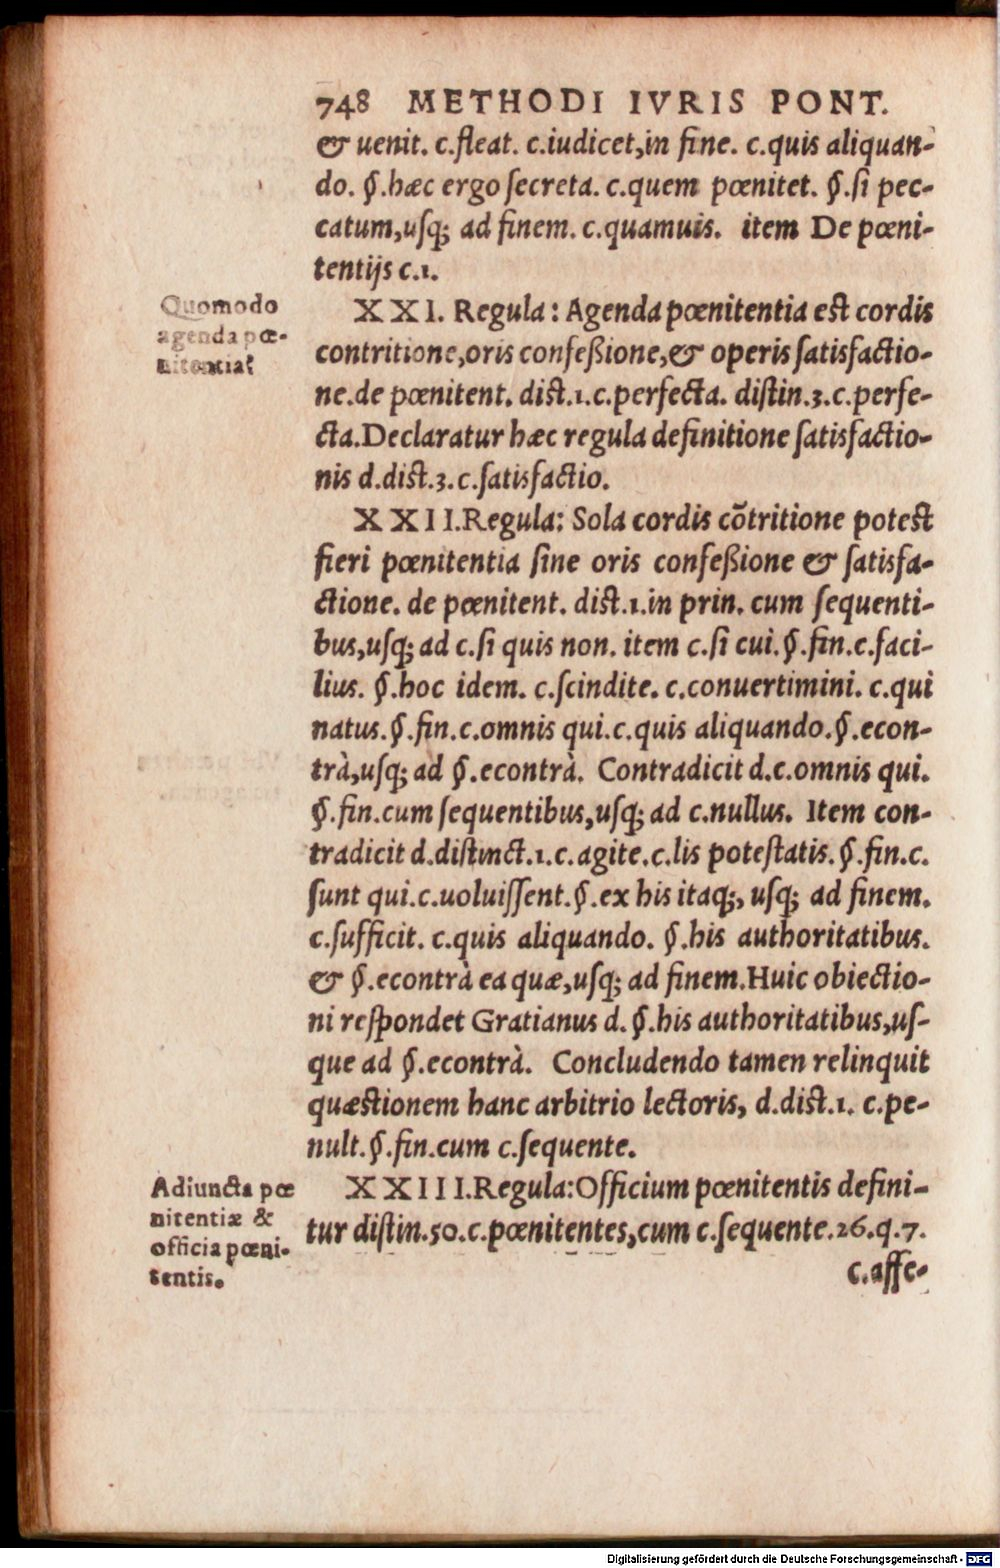 748 METHODI IVRIS PONT.
& uenit. c.fleat. c.iudicet,in fine. c.quis aliquan-
do. §.hæc ergo secreta. c.quem pœnitet. §.si pec-
catum,usq; ad finem. c.quamuis. item De pœni-
tentijs c.1.
Quomodo
agenda pœ-
nitentia?
XXI. Regula: Agenda pœnitentia est cordis
contritione,oris confeßione,& operis satisfactio-
ne.de pœnitent. dist.1.c.perfecta. distin.3.c.perfe-
cta.Declaratur hæc regula definitione satisfactio-
nis d.dist.3.c.satisfactio.
XXII.Regula: Sola cordis cõtritione potest
fieri pœnitentia sine oris confeßione & satisfa-
ctione. de pœnitent. dist.1.in prin. cum sequenti-
bus,usq; ad c.si quis non. item c.si cui.§.fin.c.faci-
lius. §.hoc idem. c.scindite. c.conuertimini. c.qui
natus.§.fin.c.omnis qui.c.quis aliquando.§.econ-
trà,usq; ad §.econtrà. Contradicit d.c.omnis qui.
§.fin.cum sequentibus,usq; ad c.nullus. Item con-
tradicit d.distinct.1.c.agite.c.lis potestatis.§.fin.c.
sunt qui.c.uoluissent.§.ex his itaq;, usq; ad finem.
c.sufficit. c.quis aliquando. §.his authoritatibus.
& §.econtrà ea quæ,usq; ad finem.Huic obiectio-
ni respondet Gratianus d. §.his authoritatibus,us-
que ad §.econtrà. Concludendo tamen relinquit
quæstionem hanc arbitrio lectoris, d.dist.1. c.pe-
nult.§.fin.cum c.sequente.
Adiuncta pœ
nitentiæ &
officia pœni-
tentis.
XXIII.Regula:Officium pœnitentis defini-
tur distin.50.c.pœnitentes,cum c.sequente.26.q.7.
c.affe-
Digitalisierung gefördert durch die Deutsche Forschungsgemeinschaft - DFG